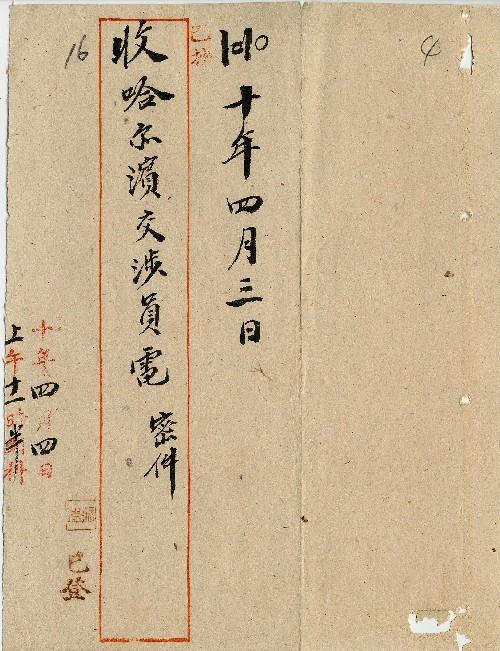 4
十年四月三日
已抄
收哈尔濱交涉員電 密件
16
十年四月四日
上午十一時半
已登